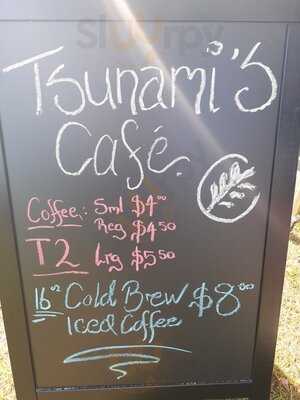 Tsunami's
Café
Coffee: Sml $4.00
Reg $4.50
T2 Lrg $5.50
16oz Cold Brew $8.00
Iced Coffee